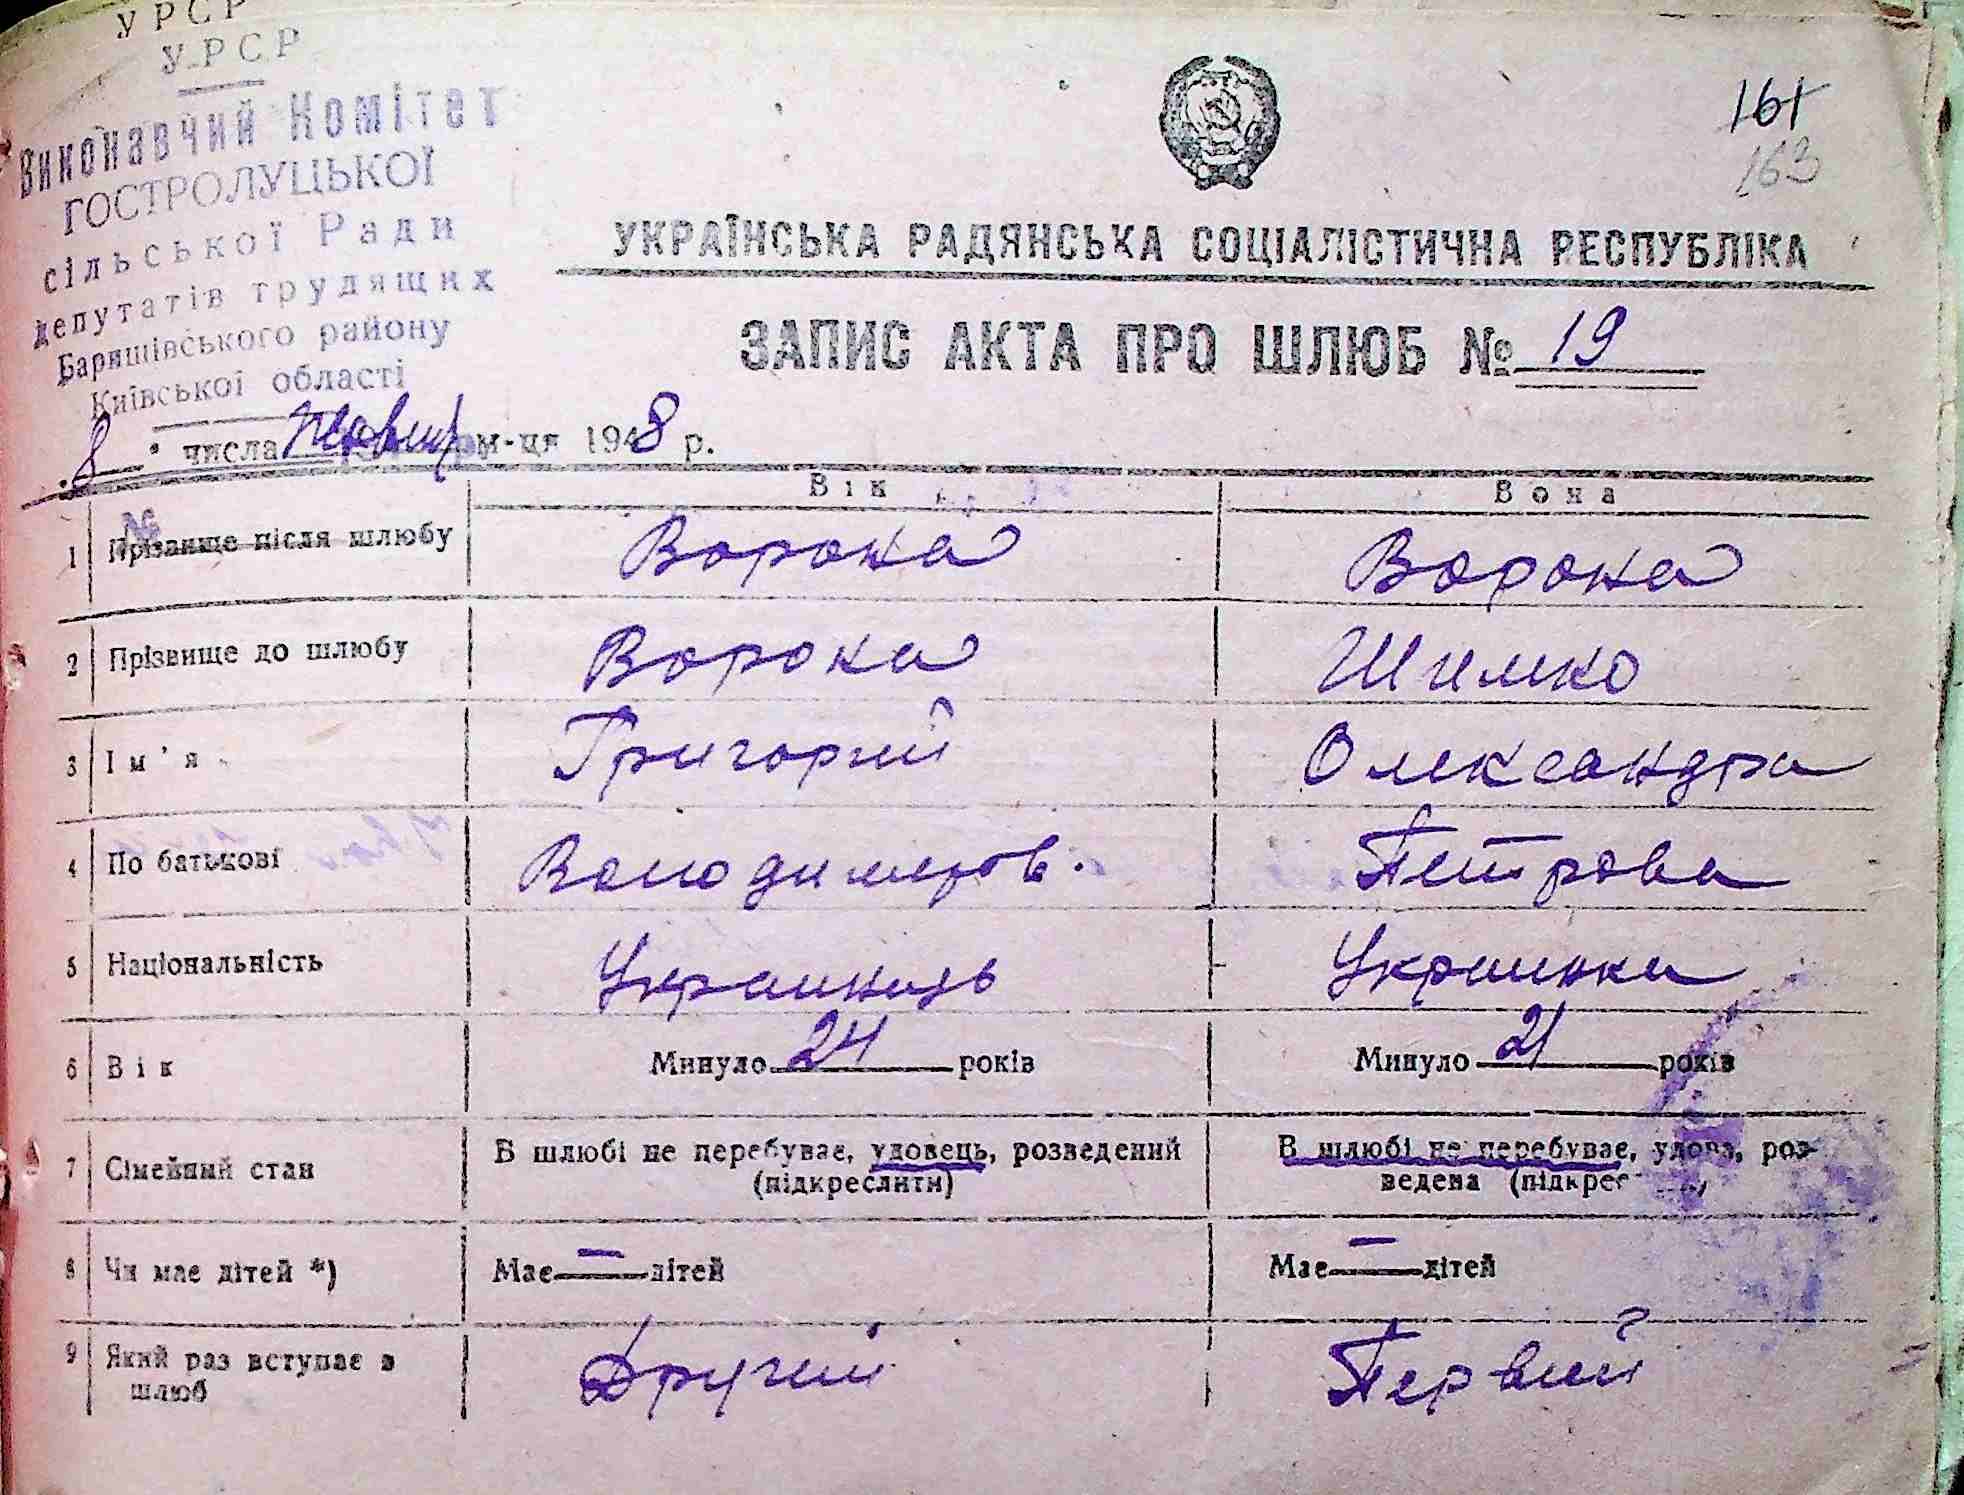 УРСР
УРСР
Виконавчий Комітет
ГОСТРОЛУЦЬКОЇ
сільської Ради
депутатів трудящих
Баришівського району
Київської області
161
163
УКРАЇНСЬКА РАДЯНСЬКА СОЦІАЛІСТИЧНА РЕСПУБЛІКА
ЗАПИС АКТА ПРО ШЛЮБ № 19
„8" числа м-ця 1948 р.
Він Вона
1 Прізвище після шлюбу Ворона Ворона
2 Прізвище до шлюбу Ворона Шимко
3 Ім'я Григорий Олександра
4 По батькові Володимеров. Петровна
5 Національність Украинець Украинка
6 Вік Минуло 24 років Минуло 21 років
7 Сімейний стан В шлюбі не перебуває, удовець, розведений (підкреслити) В шлюбі не перебуває, удова, роз-
ведена (підкрес
8 Чи має дітей *) Має — дітей Має — дітей
9 Який раз вступає в шлюб Другий Первий